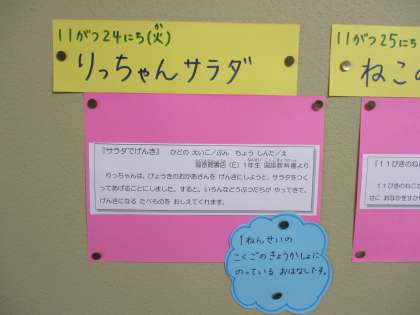 11がつ24にち(火)
か
りっちゃんサラダ
11がつ25にち
ねこの
『サラダでげんき』 かどの えいこ/ぶん ちょう しんた/え
福音館書店 (E) 1年生 国語教科書より
りっちゃんは、びょうきのおかあさんを げんきにしようと、サラダをつく
ってあげることにしました。すると、いろんなどうぶつたちが やってきて、
げんきになる たべものを おしえてくれます。
『11ぴきのね
11ぴきのねこが
せに おなかをすか
1ねんせいの
こくごのきょうかしょに
のっている おはなしです。